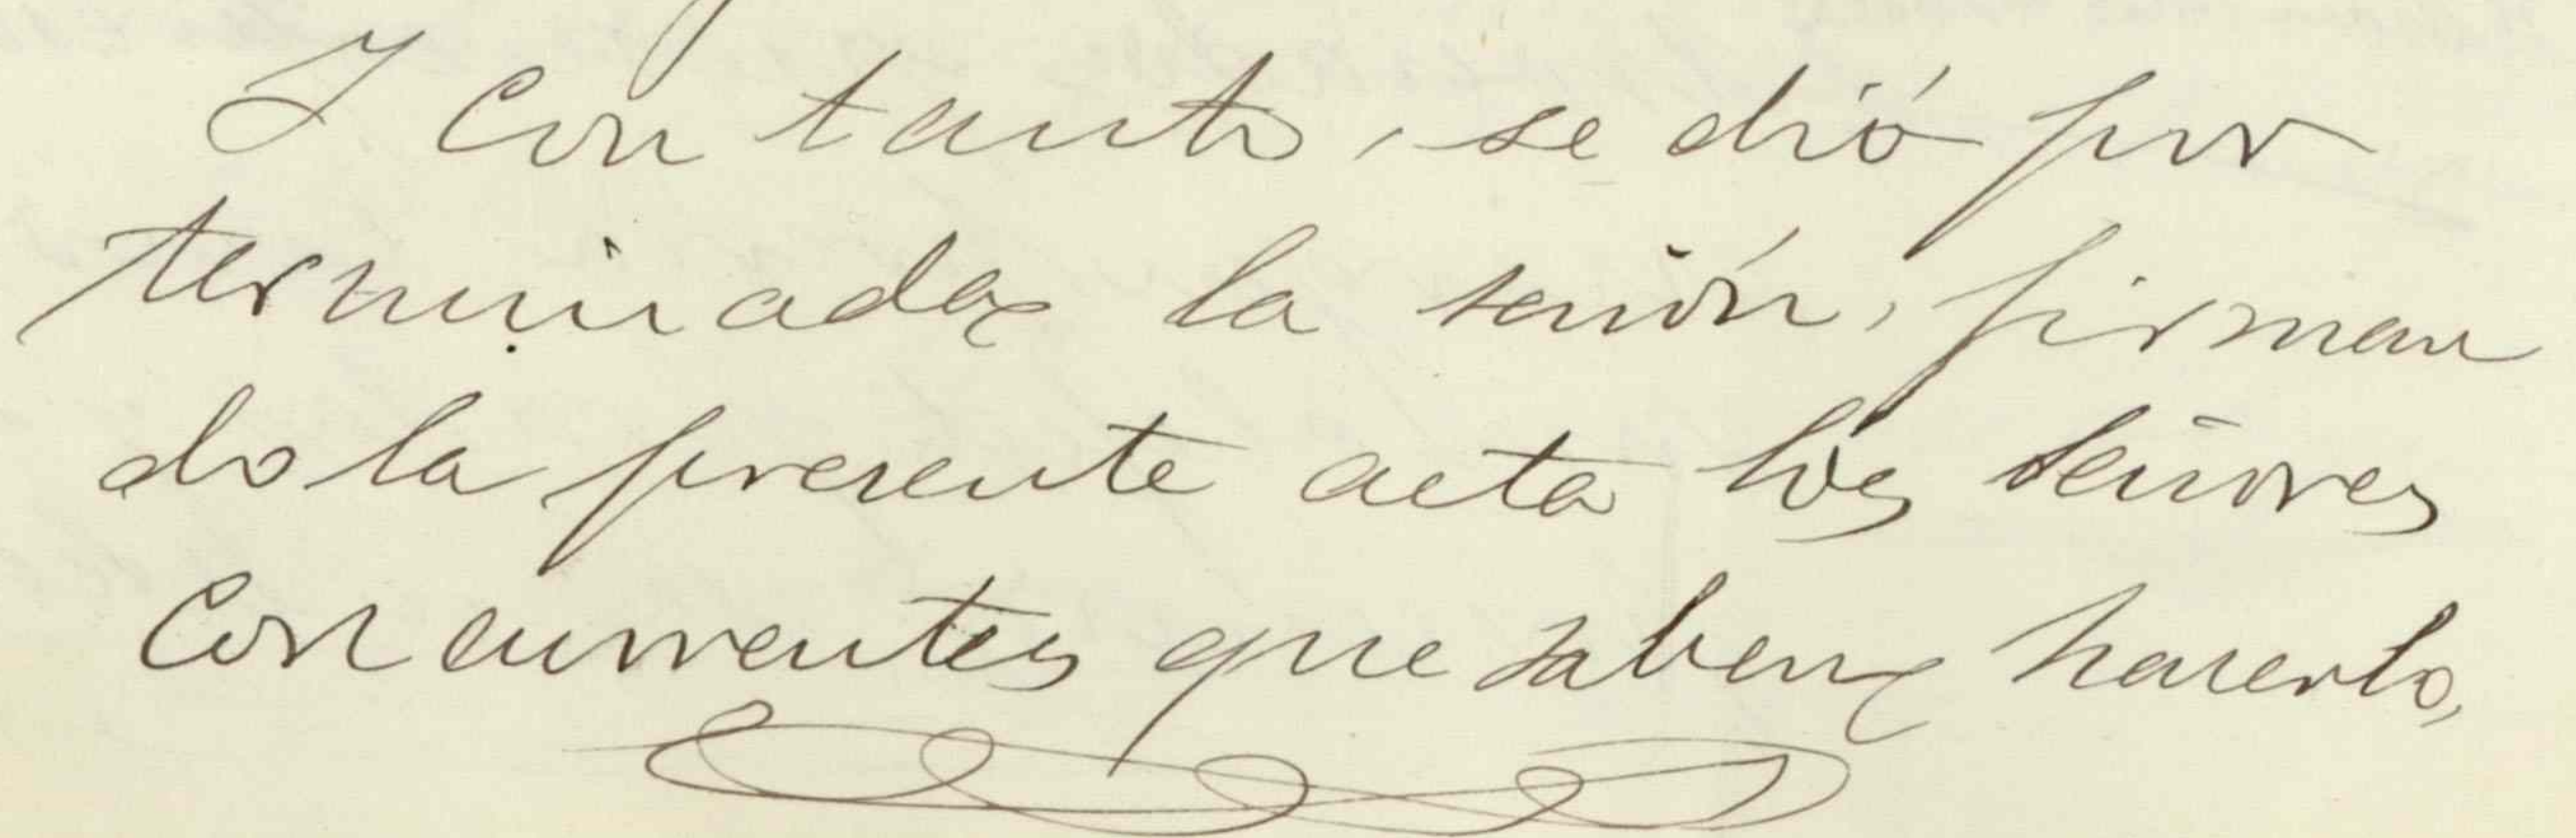 Y con tanto, se dió por
terminada la sesión, firman
do la presente acta los señores
concurrentes que saben hacerlo,